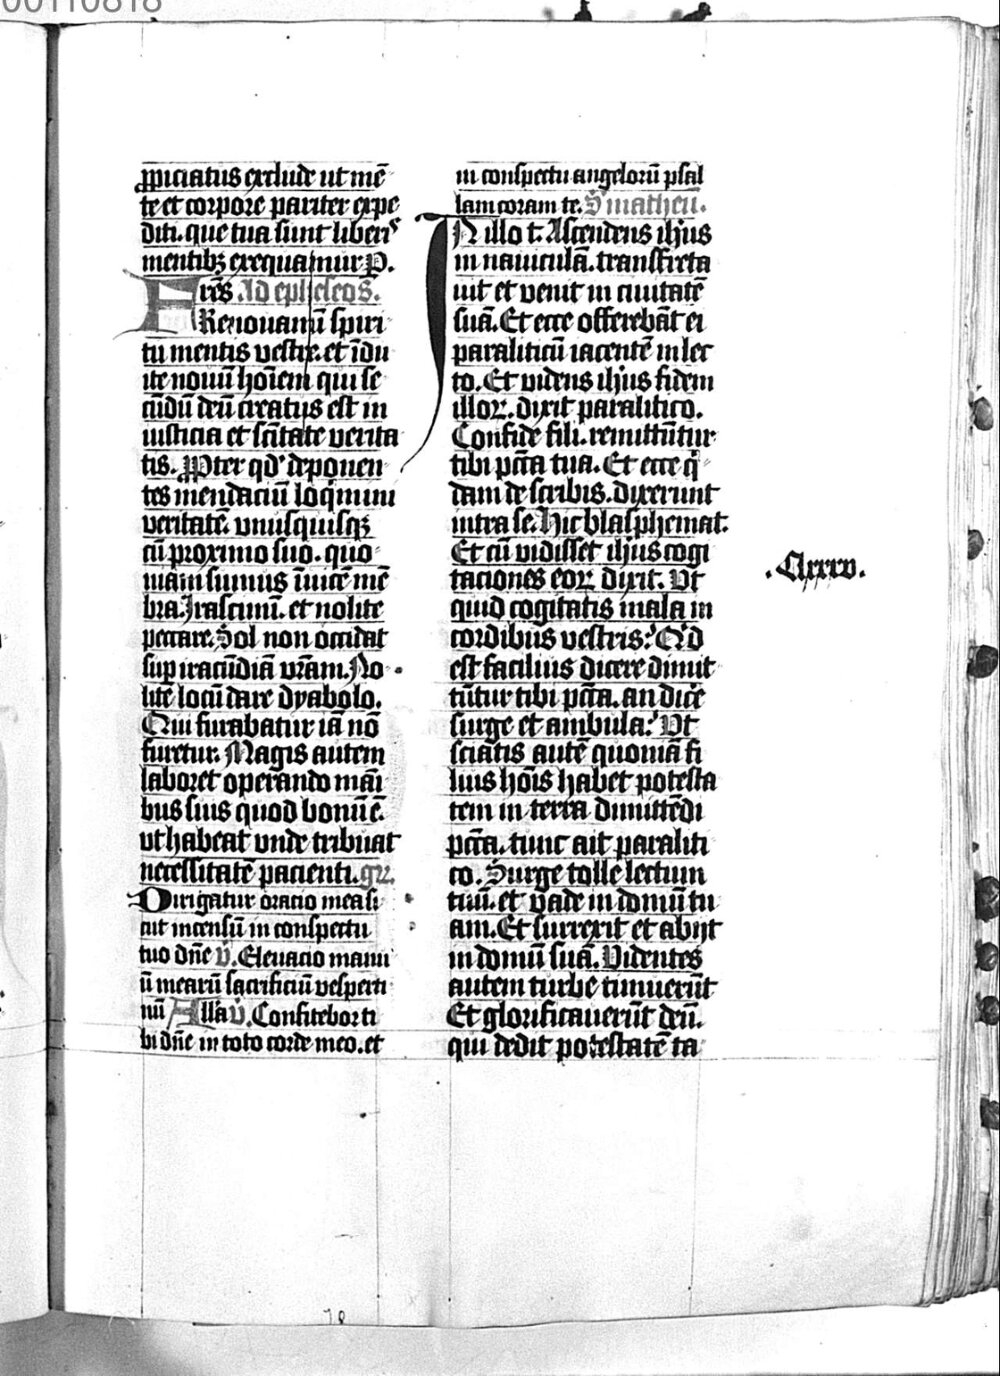 00110818
ꝓpiciatus exclude ut mē
te et corpore pariter expe
diti. que tua sunt liberꝭ
mentibꝫ exequamur P.
Fres Ad epheseos.
Renouamī spiri
tu mentis vestre. et īdu
ite nouū hoīem qui se
cūdū deū creatus est in
iusticia et sc̄itate verita
tis. Ppter qd' deponen
tes mendaciū loq̄mini
veritatē. vnusquisqꝫ
cū proximo suo. quo
niam sumus īuicē mē
bra. Irascimī. et nolite
peccare. Sol non occidat
sup iracūdiā vr̄am. No
lite locū dare dyabolo.
Qui furabatur iā nō
furetur. Magis autem
laboret operando māi
bus suis quod bonū ē.
vt habeat vnde tribuat
necessitatē pacienti. gͬ.
Dirigatur oracio mea si
cut incensū in conspectu
tuo dn̄e v̄. Eleuacio manu
ū mearū sacrificiū vesperti
nū Alla v̄. Confitebor ti
bi dn̄e in toto corde meo. et
in conspectu angelorū psal
lam coram te. S matheū.
IN illo t. Ascendens ih̄us
in nauiculā. transfreta
uit et venit in ciuitatē
suā. Et ecce offerebāt ei
paraliticū iacentē in lec
to. Et videns ih̄us fidem
illoꝝ. dixit paralitico.
Confide fili. remittūtur
tibi pcc̄a tua. Et ecce q̄
dam de scribis. dixerunt
intra se. Hic blasphemat.
Et cū vidisset ih̄us cogi
taciones eoꝝ dixit. Vt
quid cogitatis mala in
cordibus vestris? Qͥd
est facilius dicere dimit
tūtur tibi pcc̄a. an dic̄e
surge et ambula? Vt
sciatis autē quoniā fi
lius hoīs habet potesta
tem in terra dimittēdi
pcc̄a. tunc ait paraliti
co. Surge tolle lectum
tuū. et vade in domū tu
am. Et surrexit et abijt
in domū suā. Videntes
autem turbe timuerūt
Et glorificauerūt deū.
qui dedit potestatē ta
.Clxxxv.